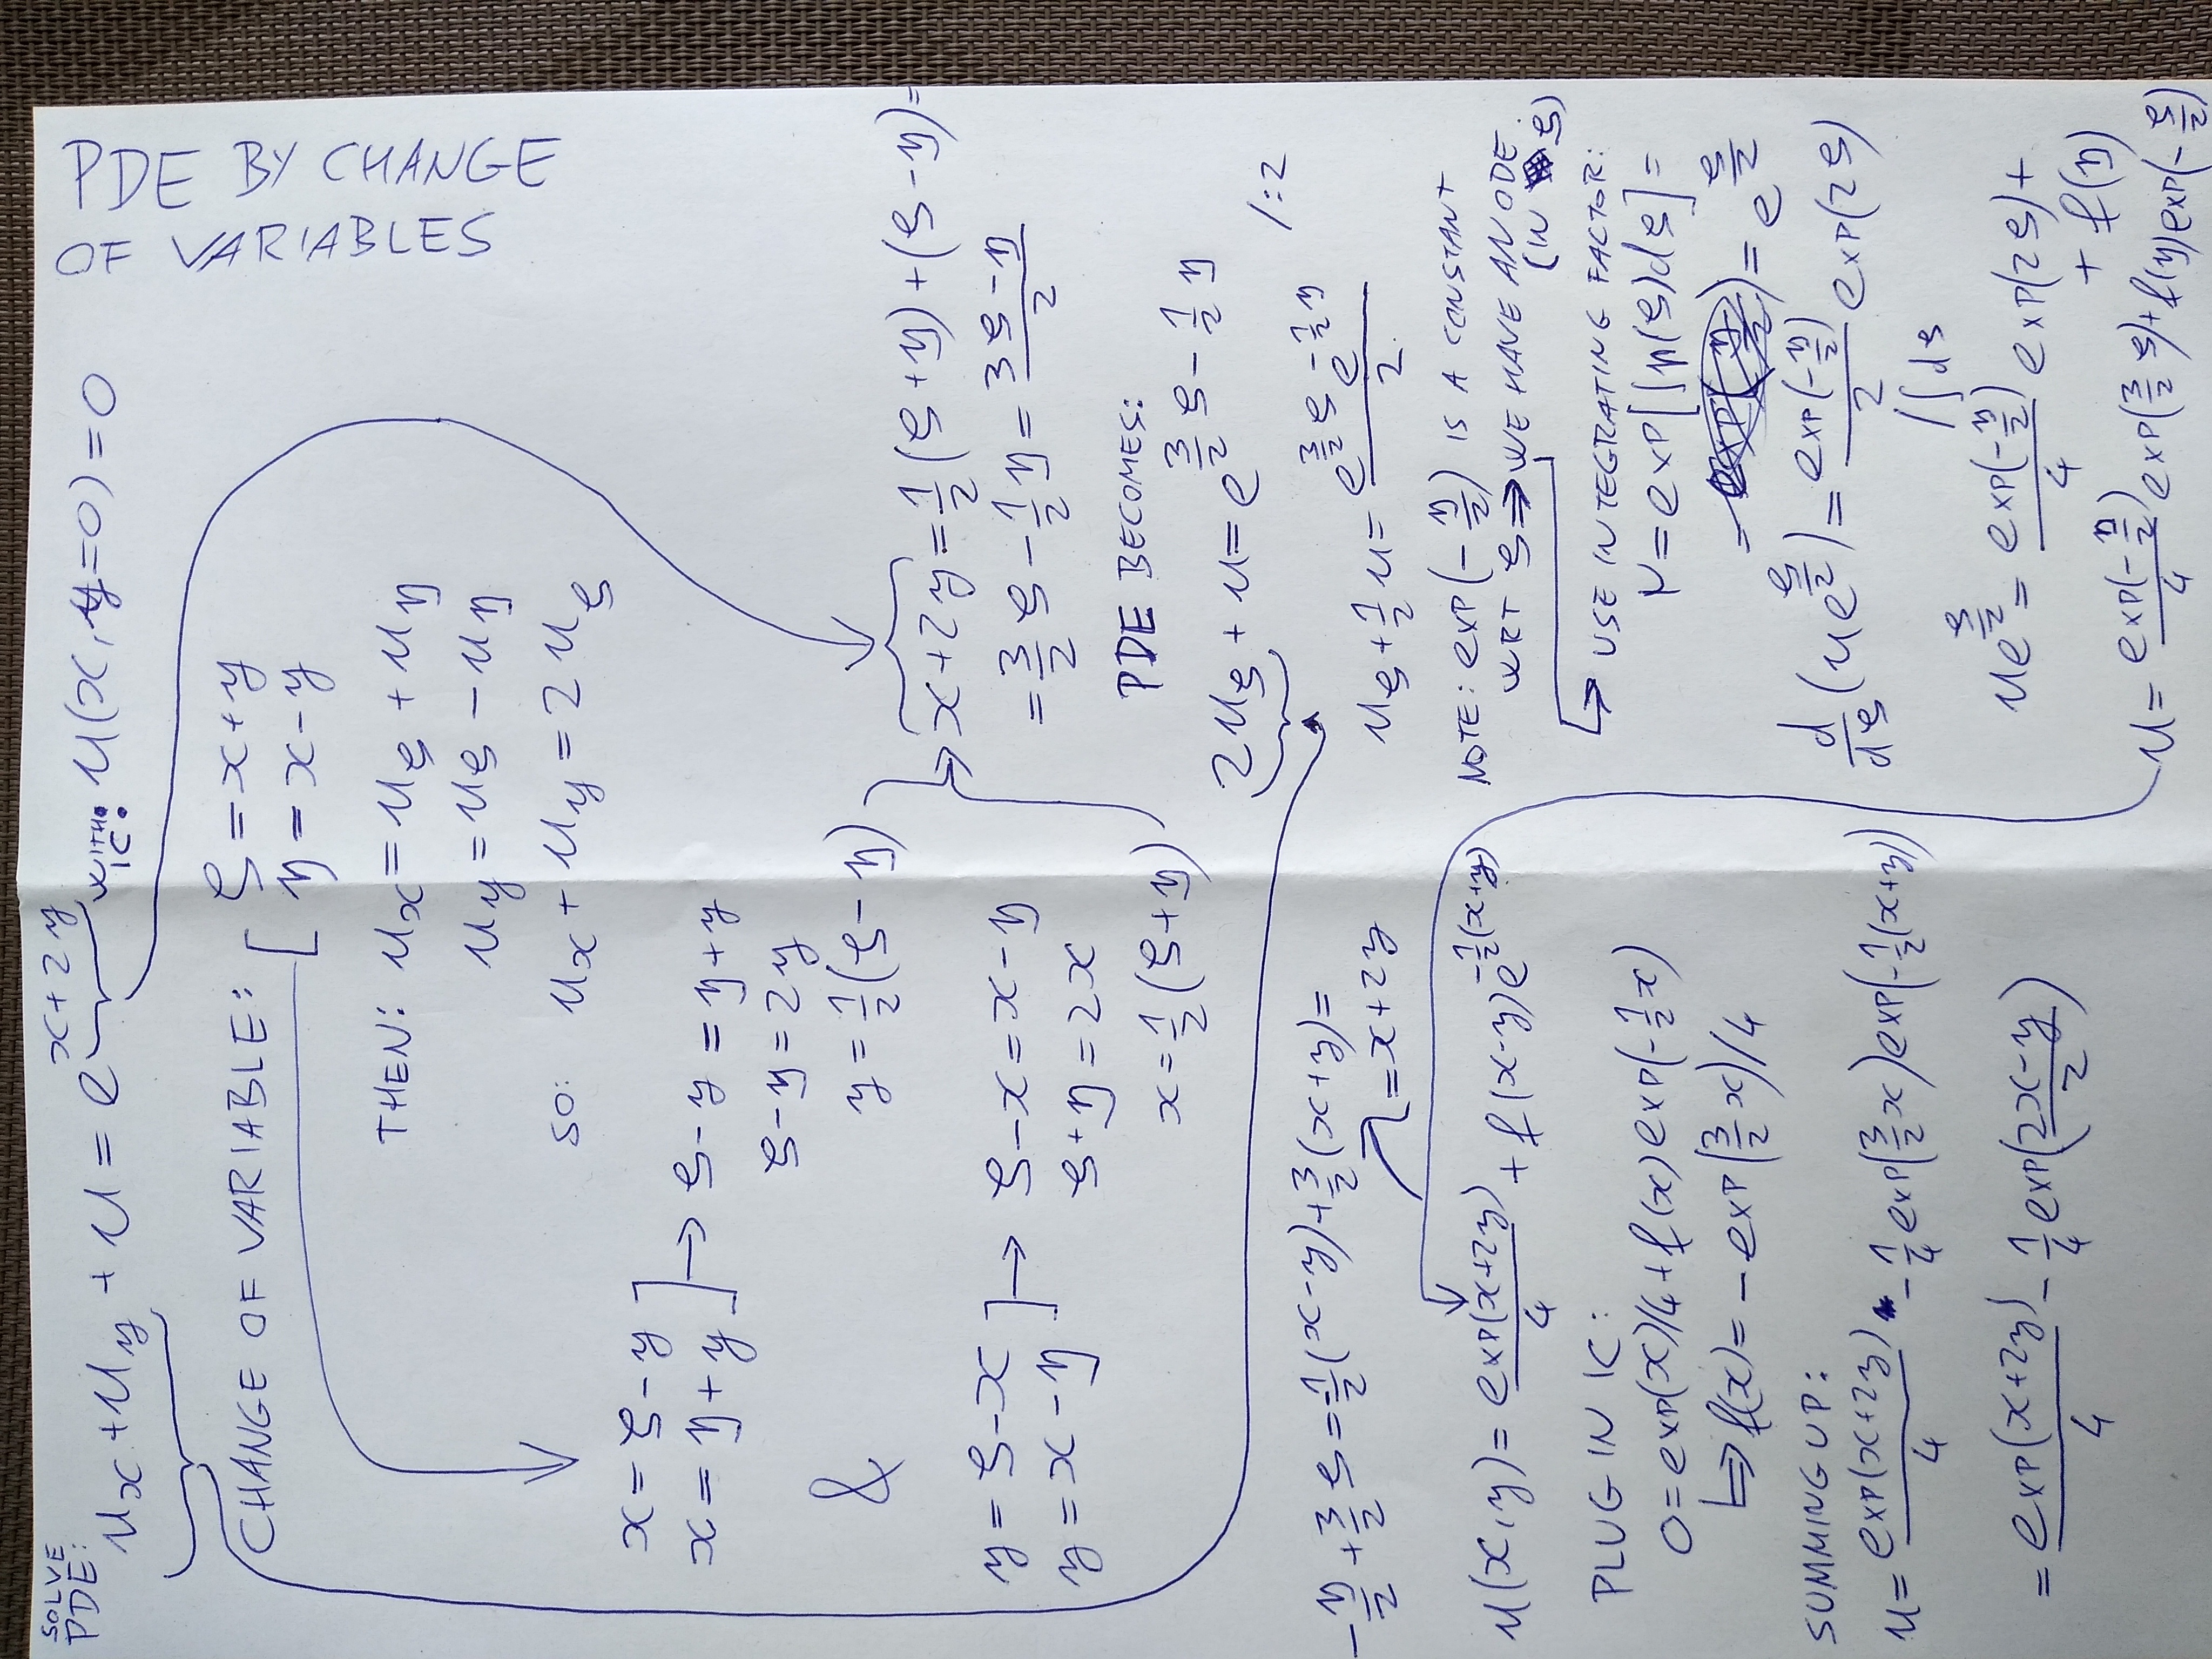 PDE BY CHANGE
OF VARIABLES
SOLVE
PDE:
u_x + u_y + u = e^{x+2y} WITH IC: u(x, y=0) = 0
CHANGE OF VARIABLE: [ ξ = x+y
η = x-y
THEN: u_x = u_ξ + u_η
u_y = u_ξ - u_η
SO: u_x + u_y = 2u_ξ
x = ξ-y
x = η+y ] → ξ-y = η+y
ξ-η = 2y
y = 1/2(ξ-η)
&
y = ξ-x
y = x-η ] → ξ-x = x-η
ξ+η = 2x
x = 1/2(ξ+η)
x+2y = 1/2(ξ+η)+(ξ-η) =
= 3/2 ξ - 1/2 η = (3ξ-η)/2
PDE BECOMES:
2u_ξ + u = e^{3/2 ξ - 1/2 η} /:2
u_ξ + 1/2 u = e^{3/2 ξ} e^{-1/2 η}/2
NOTE: EXP(-η/2) IS A CONSTANT
WRT ξ ⇒ WE HAVE AN ODE
(IN ξ)
↳ USE INTEGRATING FACTOR:
μ = EXP[∫p(ξ)dξ] =
= e^{ξ/2}
d/dξ (u e^{ξ/2}) = EXP(-η/2)/2 EXP(2ξ)
/∫dξ
u e^{ξ/2} = EXP(-η/2)/4 EXP(2ξ) +
+ f(η)
u = EXP(-η/2)/4 EXP(3/2 ξ) + f(η) EXP(-ξ/2)
-η/2 + 3/2 ξ = -1/2(x-y) + 3/2(x+y) =
= x+2y
u(x,y) = EXP(x+2y)/4 + f(x-y)e^{-1/2(x+y)}
PLUG IN IC:
0 = EXP(x)/4 + f(x) EXP(-1/2 x)
↳ f(x) = -EXP(3/2 x)/4
SUMMING UP:
u = EXP(x+2y)/4 - 1/4 EXP(3/2 x) EXP(-1/2(x+y))
= EXP(x+2y)/4 - 1/4 EXP((2x-y)/2)